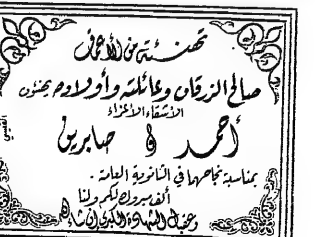 تهنئة من الأعماق
صالح الزرقان وعائلته وأولاده يهنئون
الأشقاء الأعزاء
أحمد و صابرين
بمناسبة نجاحهما في الثانوية العامة .
ألف مبروك لكم ولنا
وعقبال الشهادة الكبرى إن شاء الله